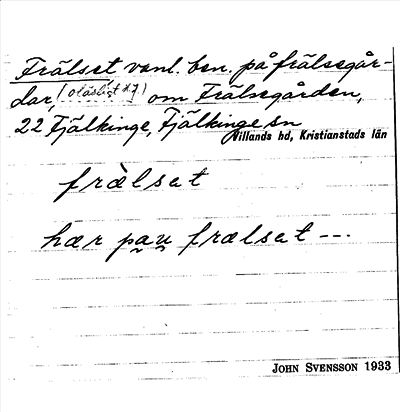 Frälset vanl. ben. på frälsegår-
dar, [oläsligt] om Frälsegården,
22 Fjälkinge, Fjälkinge sn
Villands hd, Kristianstads län
frælset
hær pau frælset ---
JOHN SVENSSON 1933